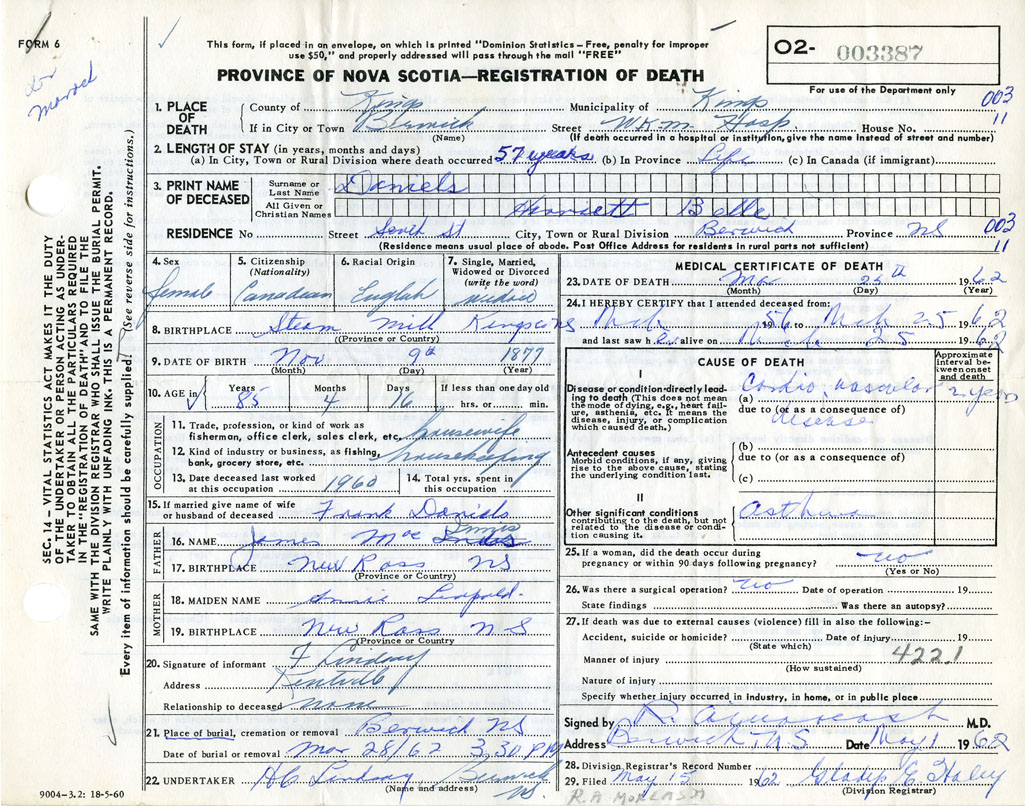 FORM 6
This form, if placed in an envelope, on which is printed "Dominion Statistics – Free, penalty for improper
use $50," and properly addressed will pass through the mail "FREE"
PROVINCE OF NOVA SCOTIA—REGISTRATION OF DEATH
O2- 003387
For use of the Department only
003
11
SEC. 14 – VITAL STATISTICS ACT MAKES IT THE DUTY
OF THE UNDERTAKER OR PERSON ACTING AS UNDER-
TAKER TO OBTAIN ALL THE PARTICULARS REQUIRED
IN THE "REGISTRATION OF DEATH" AND TO FILE THE
SAME WITH THE DIVISION REGISTRAR WHO SHALL ISSUE THE BURIAL PERMIT.
WRITE PLAINLY WITH UNFADING INK. THIS IS A PERMANENT RECORD.
Every item of information should be carefully supplied. (See reverse side for instructions.)
1. PLACE OF DEATH
County of Kings Municipality of Kings
If in City or Town Berwick Street W.K.M. Hosp House No.
(Name) (If death occurred in a hospital or institution, give the name instead of street and number)
2. LENGTH OF STAY (in years, months and days)
(a) In City, Town or Rural Division where death occurred 57 years (b) In Province Life (c) In Canada (if immigrant)
3. PRINT NAME OF DECEASED
Surname or Last Name Daniels
All Given or Christian Names Harriett Belle
RESIDENCE No Street South St City, Town or Rural Division Berwick Province NS
003
11
(Residence means usual place of abode. Post Office Address for residents in rural parts not sufficient)
4. Sex female
5. Citizenship (Nationality) Canadian
6. Racial Origin English
7. Single, Married, Widowed or Divorced (write the word) widow
8. BIRTHPLACE Steam Mill Kings co NS
(Province or Country)
9. DATE OF BIRTH Nov 9th 1877
(Month) (Day) (Year)
10. AGE in Years 85 Months 4 Days 16 If less than one day old hrs. or min.
OCCUPATION
11. Trade, profession, or kind of work as
fisherman, office clerk, sales clerk, etc. housewife
12. Kind of industry or business, as fishing,
bank, grocery store, etc. housekeeping
13. Date deceased last worked at this occupation 1960
14. Total yrs. spent in this occupation
15. If married give name of wife or husband of deceased Frank Daniels
FATHER
16. NAME James Mac Innis
17. BIRTHPLACE New Ross NS
(Province or Country)
MOTHER
18. MAIDEN NAME Annie Leopold
19. BIRTHPLACE New Ross NS
(Province or Country
20. Signature of informant F Lindsay
Address Kentville
Relationship to deceased none
21. Place of burial, cremation or removal Berwick NS
Date of burial or removal Mar 28/62 3.30 PM
22. UNDERTAKER HC Lindsay Berwick NS.
(Name and address)
9004–3.2: 18-5-60
MEDICAL CERTIFICATE OF DEATH
23. DATE OF DEATH Mar 25th 1962
(Month) (Day) (Year)
24. I HEREBY CERTIFY that I attended deceased from:
Mch 1956 to Mch 25 1962
and last saw her alive on Mch 25 1962
CAUSE OF DEATH
Approximate interval between onset and death
I
Disease or condition directly lead-
ing to death (This does not mean
the mode of dying, e.g., heart fail-
ure, asthenia, etc. It means the
disease, injury, or complication
which caused death.)
(a) Cardio vascular 2 years
due to (or as a consequence of)
disease
Antecedent causes
Morbid conditions, if any, giving
rise to the above cause, stating
the underlying condition last.
(b)
due to (or as a consequence of)
(c)
II
Other significant conditions
contributing to the death, but not
related to the disease or condi-
tion causing it.
Asthma
25. If a woman, did the death occur during
pregnancy or within 90 days following pregnancy? no
(Yes or No)
26. Was there a surgical operation? no Date of operation 19
State findings Was there an autopsy?
27. If death was due to external causes (violence) fill in also the following:-
Accident, suicide or homicide? Date of injury 19
(State which)
Manner of injury 422.1
(How sustained)
Nature of injury
Specify whether injury occurred in industry, in home, or in public place
Signed by M.D.
Address Berwick, N.S Date May 1 1962
28. Division Registrar's Record Number
29. Filed May 15 1962 Gladys E Haley
(Division Registrar)